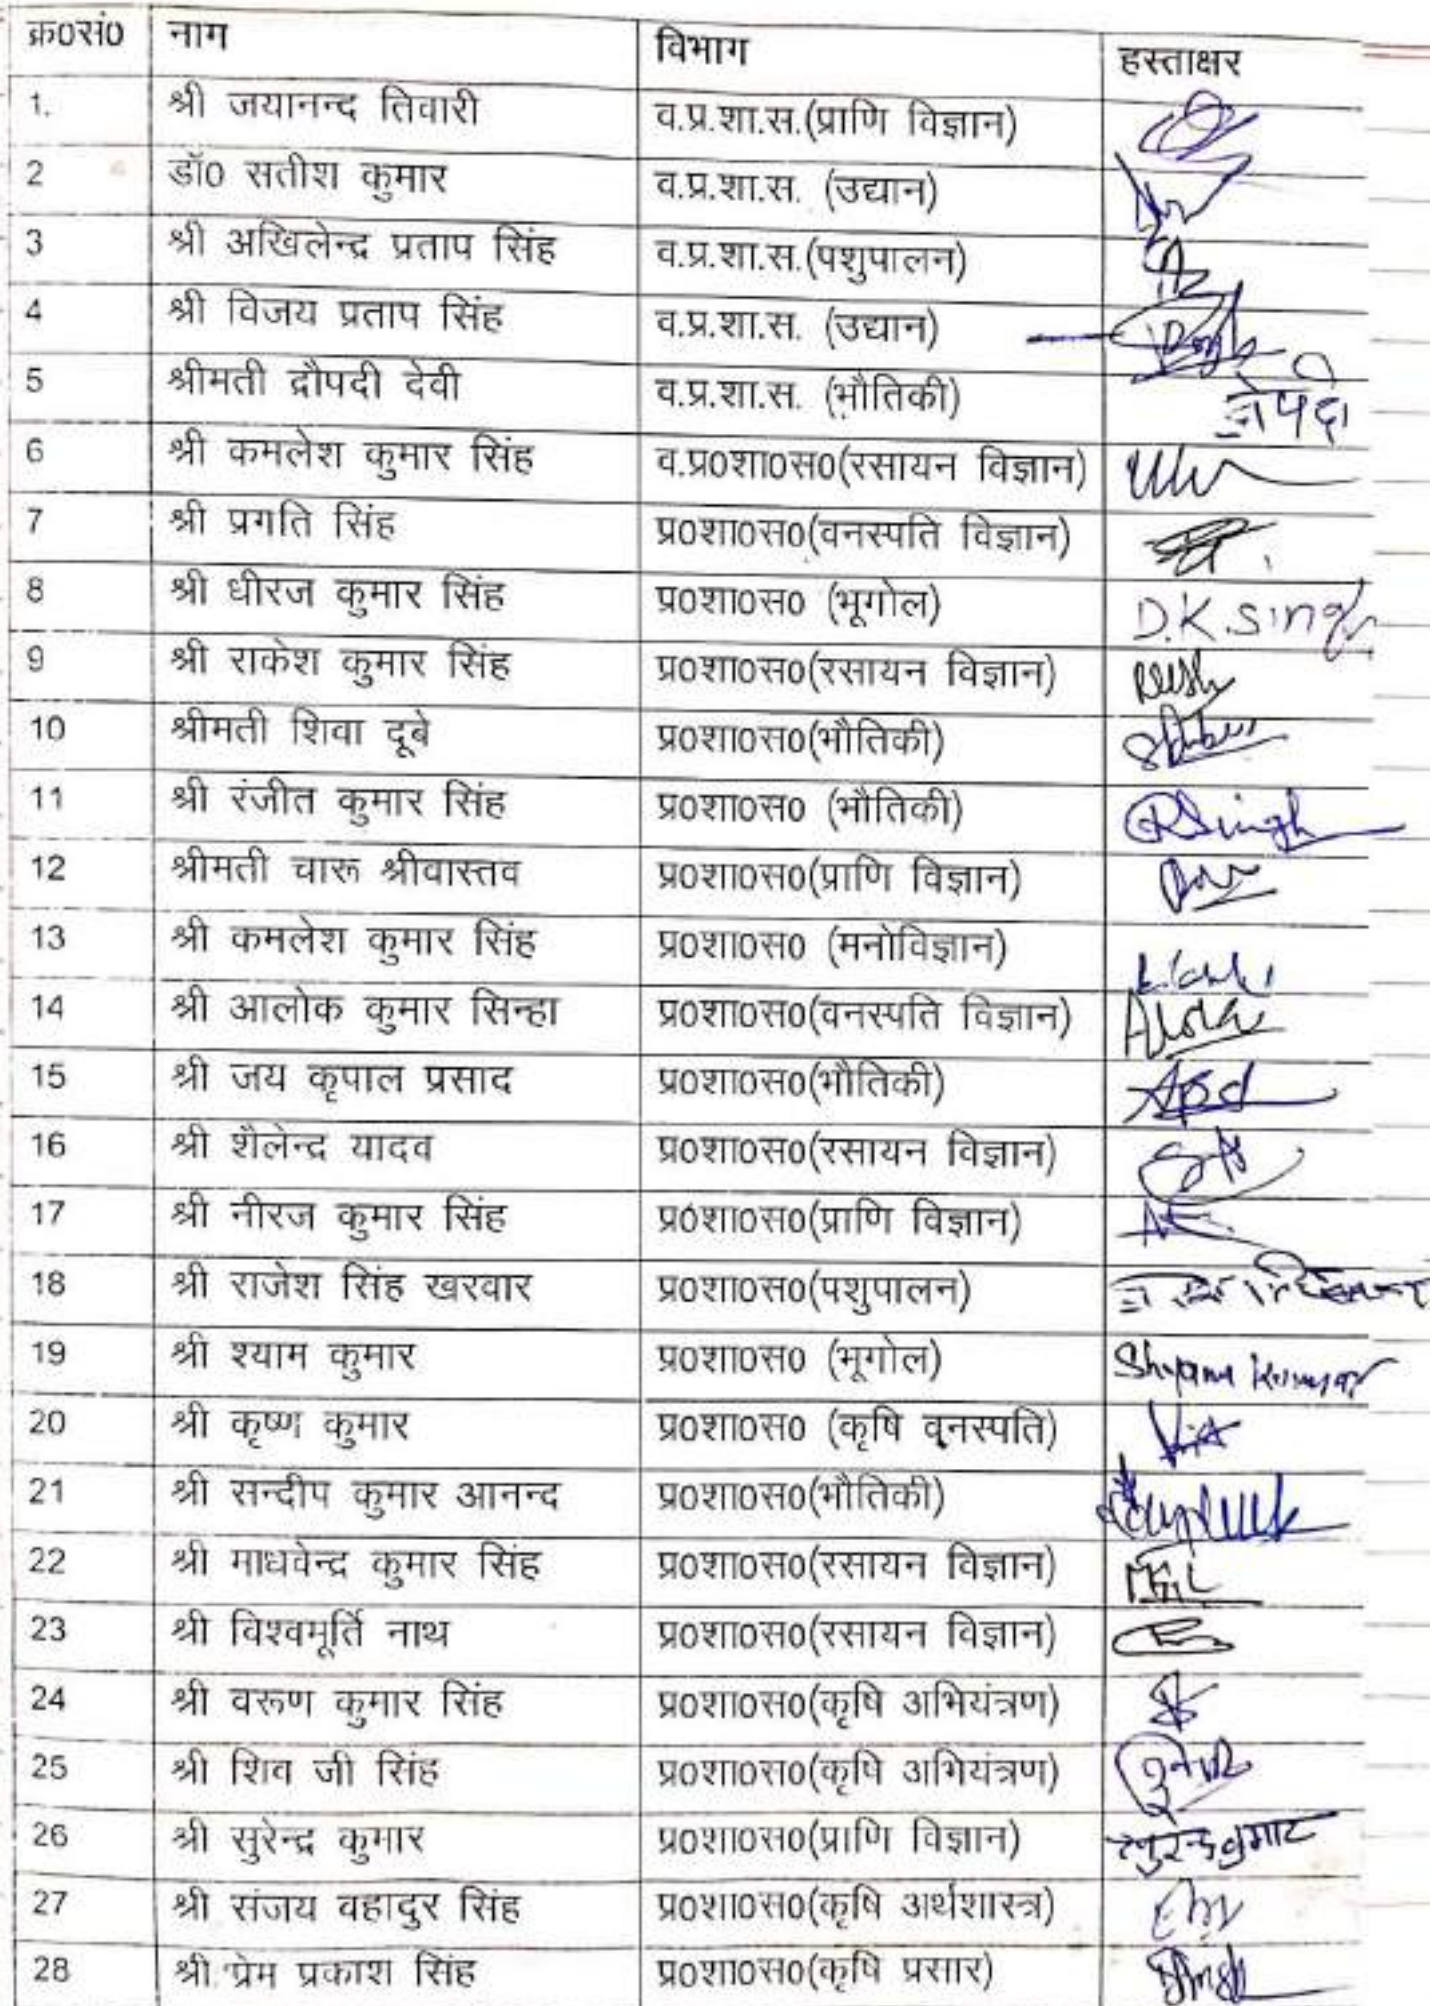 क्र0सं0 नाम विभाग हस्ताक्षर
1. श्री जयानन्द तिवारी व.प्र.शा.स.(प्राणि विज्ञान)
2 डॉ0 सतीश कुमार व.प्र.शा.स. (उद्यान)
3 श्री अखिलेन्द्र प्रताप सिंह व.प्र.शा.स.(पशुपालन)
4 श्री विजय प्रताप सिंह व.प्र.शा.स. (उद्यान)
5 श्रीमती द्रौपदी देवी व.प्र.शा.स. (भौतिकी)
6 श्री कमलेश कुमार सिंह व.प्र0शा0स0(रसायन विज्ञान)
7 श्री प्रगति सिंह प्र0शा0स0(वनस्पति विज्ञान)
8 श्री धीरज कुमार सिंह प्र0शा0स0 (भूगोल) D.K.Singh
9 श्री राकेश कुमार सिंह प्र0शा0स0(रसायन विज्ञान)
10 श्रीमती शिवा दूबे प्र0शा0स0(भौतिकी)
11 श्री रंजीत कुमार सिंह प्र0शा0स0 (भौतिकी) RSingh
12 श्रीमती चारू श्रीवास्तव प्र0शा0स0(प्राणि विज्ञान)
13 श्री कमलेश कुमार सिंह प्र0शा0स0 (मनोविज्ञान)
14 श्री आलोक कुमार सिन्हा प्र0शा0स0(वनस्पति विज्ञान)
15 श्री जय कृपाल प्रसाद प्र0शा0स0(भौतिकी)
16 श्री शैलेन्द्र यादव प्र0शा0स0(रसायन विज्ञान)
17 श्री नीरज कुमार सिंह प्र0शा0स0(प्राणि विज्ञान)
18 श्री राजेश सिंह खरवार प्र0शा0स0(पशुपालन)
19 श्री श्याम कुमार प्र0शा0स0 (भूगोल) Shyam Kumar
20 श्री कृष्ण कुमार प्र0शा0स0 (कृषि वनस्पति)
21 श्री सन्दीप कुमार आनन्द प्र0शा0स0(भौतिकी)
22 श्री माधवेन्द्र कुमार सिंह प्र0शा0स0(रसायन विज्ञान)
23 श्री विश्वमूर्ति नाथ प्र0शा0स0(रसायन विज्ञान)
24 श्री वरूण कुमार सिंह प्र0शा0स0(कृषि अभियंत्रण)
25 श्री शिव जी सिंह प्र0शा0स0(कृषि अभियंत्रण)
26 श्री सुरेन्द्र कुमार प्र0शा0स0(प्राणि विज्ञान) सुरेन्द्र कुमार
27 श्री संजय वहादुर सिंह प्र0शा0स0(कृषि अर्थशास्त्र)
28 श्री प्रेम प्रकाश सिंह प्र0शा0स0(कृषि प्रसार)